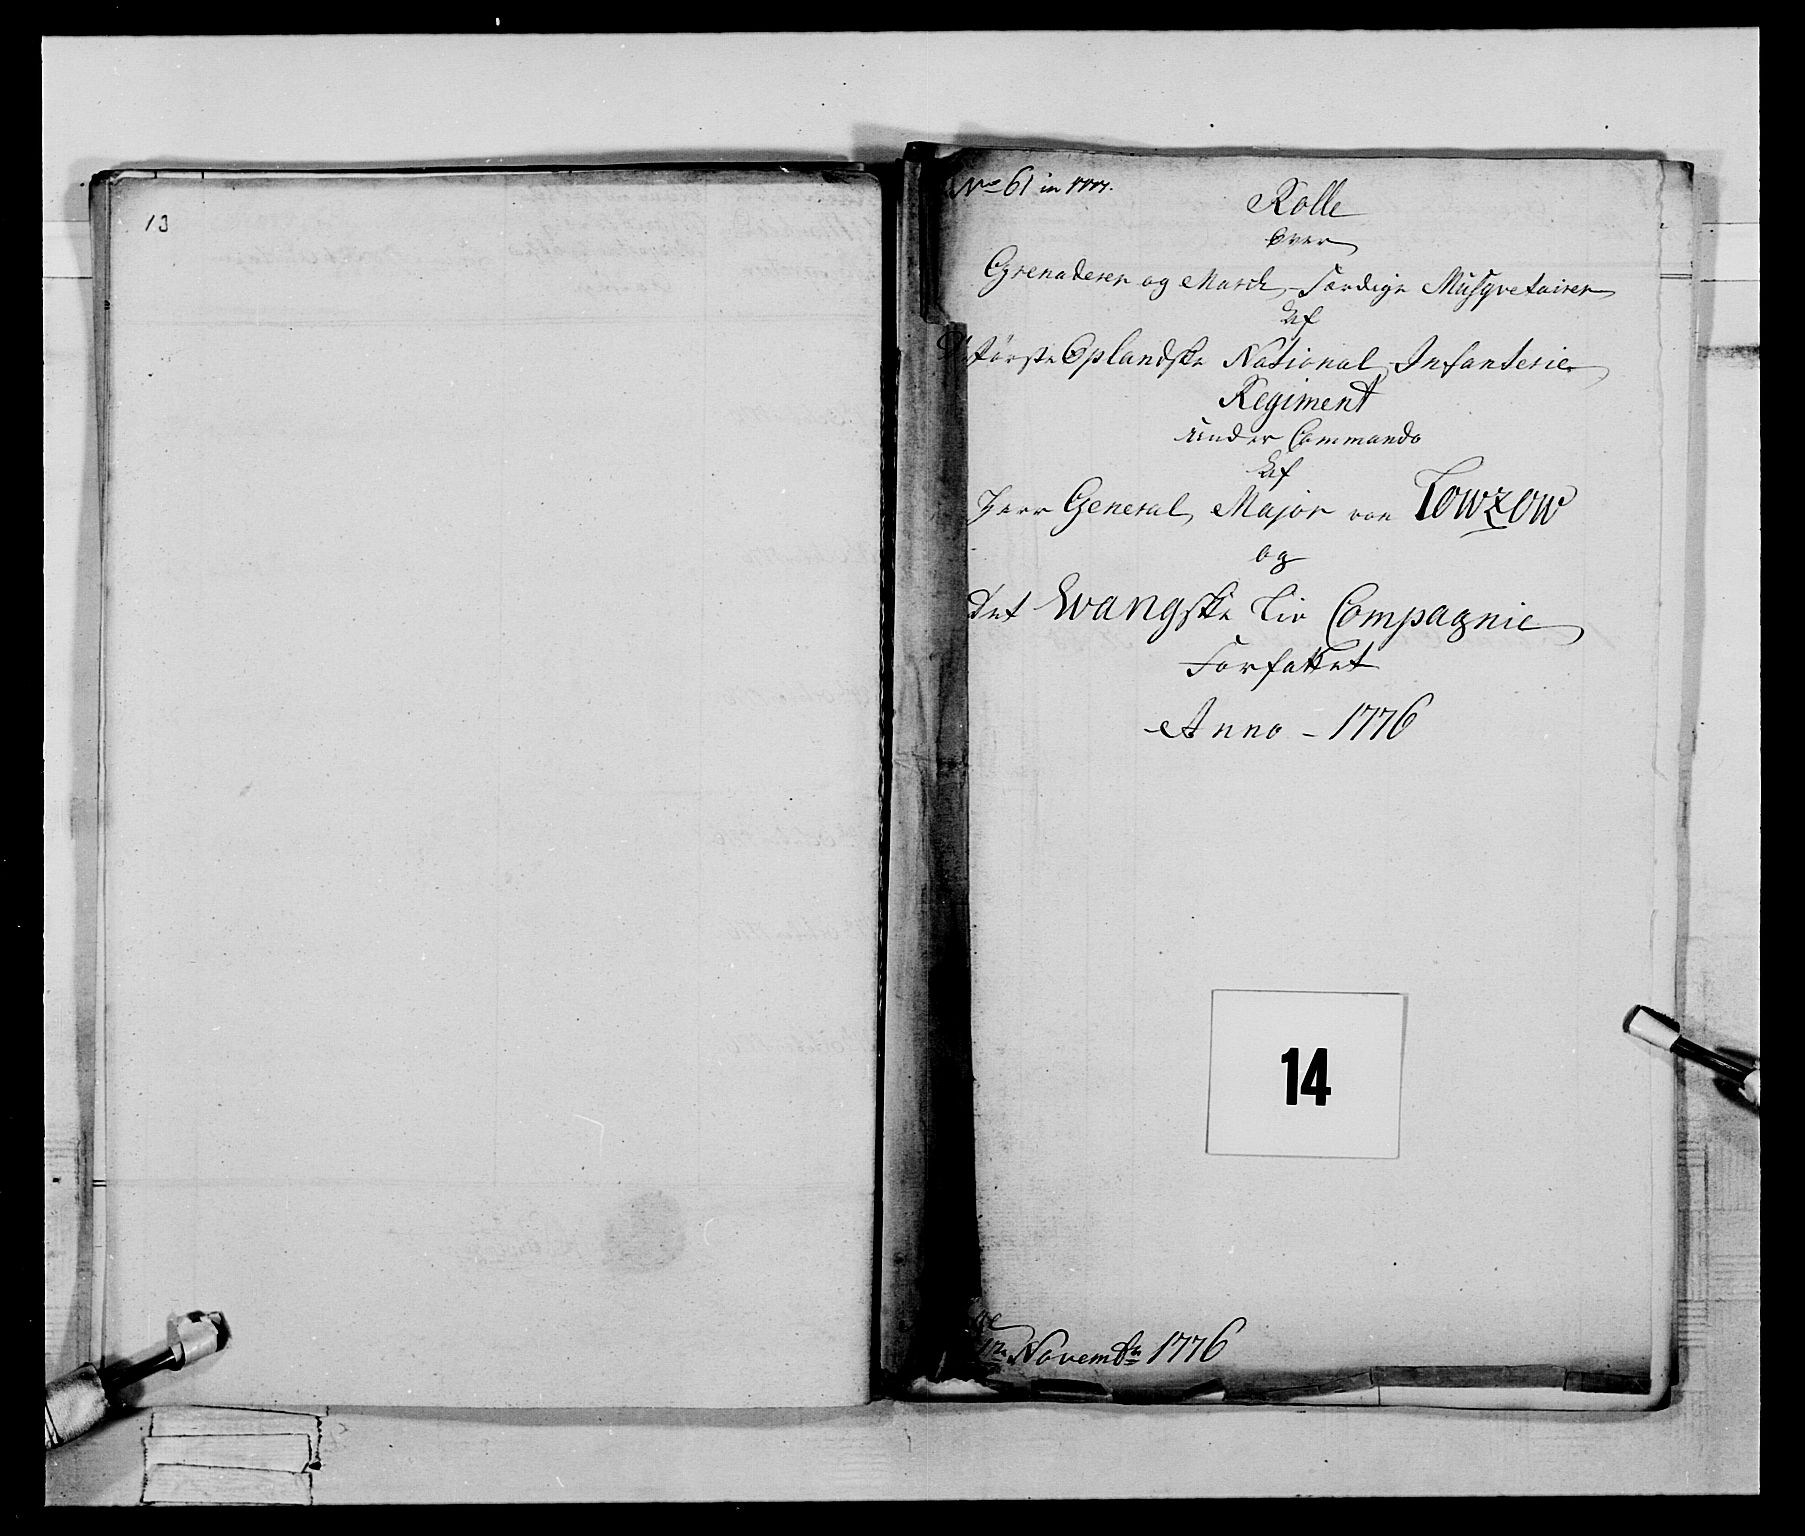 13
No 61 in 1777.
Rolle
over
Grenaderer og March-Færdige Musqvetairer
Af
Første Oplandske National Infanterie
Regiment
under Commando
Af
Herr General Major von Lowzow
og
Det Wangske Liv Compagnie
Forfattet
Anno - 1776
14
Novembr 1776